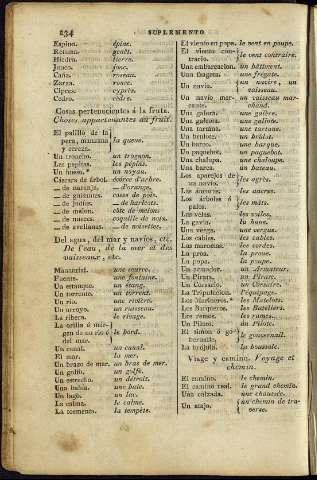 234 SUPLEMENTO
Espino. épine.
Retama. genêt.
Hiedra. lierre.
Junco. jonc.
Caña. roseau.
Zarza. ronce.
Cipres. cyprès.
Cedro. cèdre.
Cosas pertenecientes á la fruta.
Choses appartenantes au fruit.
El palillo de la
pera, manzana la queue.
y cereza.
Un troncho. un trognon.
Las pepitas. les pépins.
Un hueso.* un noyau.
Cáscara de árbol. écorce d'arbre.
— de naranja. — d'orange.
— de guisantes. cosse de pois.
— de judias. — de haricots.
— de melon. côte de melon.
— de nueces. coquille de noix.
— de avellanas. — de noisettes.
Del agua, del mar y navíos, etc.
De l'eau, de la mer et des
vaisseaux, etc.
Manantial. une source.
Fuente. une fontaine.
Un estanque. un étang.
Un torrente. un torrent.
Un rio. une rivière.
Un arroyo. un ruisseau.
La ribera. le rivage.
La orilla ó már-
gen de un rio ó le bord.
del mar.
Un canal. un canal.
El mar. la mer.
Un brazo de mar. un bras de mer.
Un golfo. un golfe.
Un estrecho. un détroit.
Una bahia. une baie.
Un lago. un lac.
La calma. le calme.
La tormenta. la tempête.
El viento en popa. le vent en poupe.
El viento con-
trario. le vent contraire.
Una embarcacion. un bâtiment.
Una fragata. une frégate.
Un navío. un navire, un
vaisseau.
Un navío mer-
cante. un vaisseau mar-
chand.
Una galera. une galère.
Una galeota. une galiote.
Una tartana. une tartane.
Un brulote. un brûlot.
Un barco. une barque.
Un paquebot. un paquebot.
Una chalupa. une chaloupe.
Una barca. un bateau.
Los aparejos de
un navío. les agrès.
Las áncoras. les ancres.
Los árboles ó
palos. les mâts.
Las velas. les voiles.
La gavia. la hune.
Una verga. une vergue.
Los cables. les cables.
Las maromas. les cordes.
La proa. la proue.
La popa. la poupe.
Un armador. un Armateur.
Un Pirata. un Pirate.
Un Corsario. un Corsaire.
La Tripulacion. l'équipage.
Los Marineros.* les Matelots.
Los Barqueros. les Bateliers.
Los remos. les rames.
Un Piloto. un Pilote.
El timon ó go-
bernalle. le gouvernail.
La brújula. la boussole.
Viage y camino. Voyage et
chemin.
El camino. le chemin.
El camino real. le grand chemin.
Una calzada. une chaussée.
Un atajo. un chemin de tra-
verse.